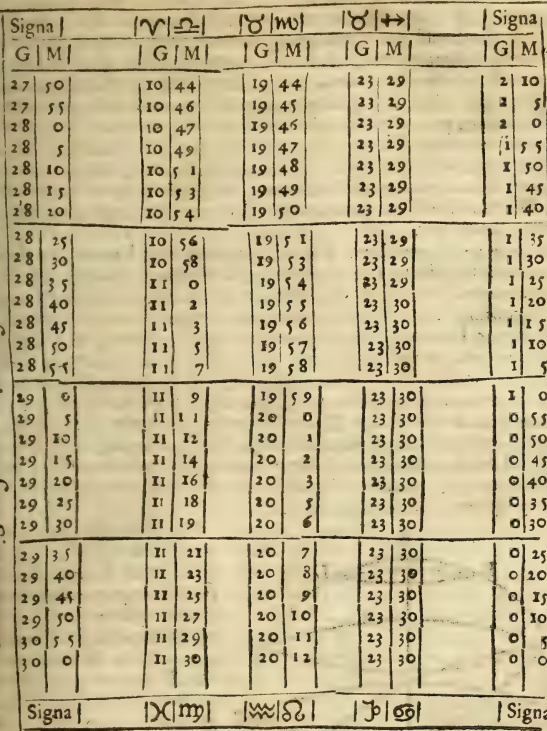 Signa | ♈ | ♎ | ♉ | ♏ | ♉ | ♐ | Signa
G | M | G | M | G | M | G | M | G | M
27 | 50 | 10 | 44 | 19 | 44 | 23 | 29 | 2 | 10
27 | 55 | 10 | 46 | 19 | 45 | 23 | 29 | 2 | 5
28 | 0 | 10 | 47 | 19 | 46 | 23 | 29 | 2 | 0
28 | 5 | 10 | 49 | 19 | 47 | 23 | 29 | 1 | 55
28 | 10 | 10 | 51 | 19 | 48 | 23 | 29 | 1 | 50
28 | 15 | 10 | 53 | 19 | 49 | 23 | 29 | 1 | 45
28 | 20 | 10 | 54 | 19 | 50 | 23 | 29 | 1 | 40
28 | 25 | 10 | 56 | 19 | 51 | 23 | 29 | 1 | 35
28 | 30 | 10 | 58 | 19 | 53 | 23 | 29 | 1 | 30
28 | 35 | 11 | 0 | 19 | 54 | 23 | 29 | 1 | 25
28 | 40 | 11 | 2 | 19 | 55 | 23 | 30 | 1 | 20
28 | 45 | 11 | 3 | 19 | 56 | 23 | 30 | 1 | 15
28 | 50 | 11 | 5 | 19 | 57 | 23 | 30 | 1 | 10
28 | 55 | 11 | 7 | 19 | 58 | 23 | 30 | 1 | 5
29 | 0 | 11 | 9 | 19 | 59 | 23 | 30 | 1 | 0
29 | 5 | 11 | 11 | 20 | 0 | 23 | 30 | 0 | 55
29 | 10 | 11 | 12 | 20 | 1 | 23 | 30 | 0 | 50
29 | 15 | 11 | 14 | 20 | 2 | 23 | 30 | 0 | 45
29 | 20 | 11 | 16 | 20 | 3 | 23 | 30 | 0 | 40
29 | 25 | 11 | 18 | 20 | 5 | 23 | 30 | 0 | 35
29 | 30 | 11 | 19 | 20 | 6 | 23 | 30 | 0 | 30
29 | 35 | 11 | 21 | 20 | 7 | 23 | 30 | 0 | 25
29 | 40 | 11 | 23 | 20 | 8 | 23 | 30 | 0 | 20
29 | 45 | 11 | 25 | 20 | 9 | 23 | 30 | 0 | 15
29 | 50 | 11 | 27 | 20 | 10 | 23 | 30 | 0 | 10
30 | 55 | 11 | 29 | 20 | 11 | 23 | 30 | 0 | 5
30 | 0 | 11 | 30 | 20 | 12 | 23 | 30 | 0 | 0
Signa | ♓ | ♍ | ♒ | ♌ | ♑ | ♋ | Signa